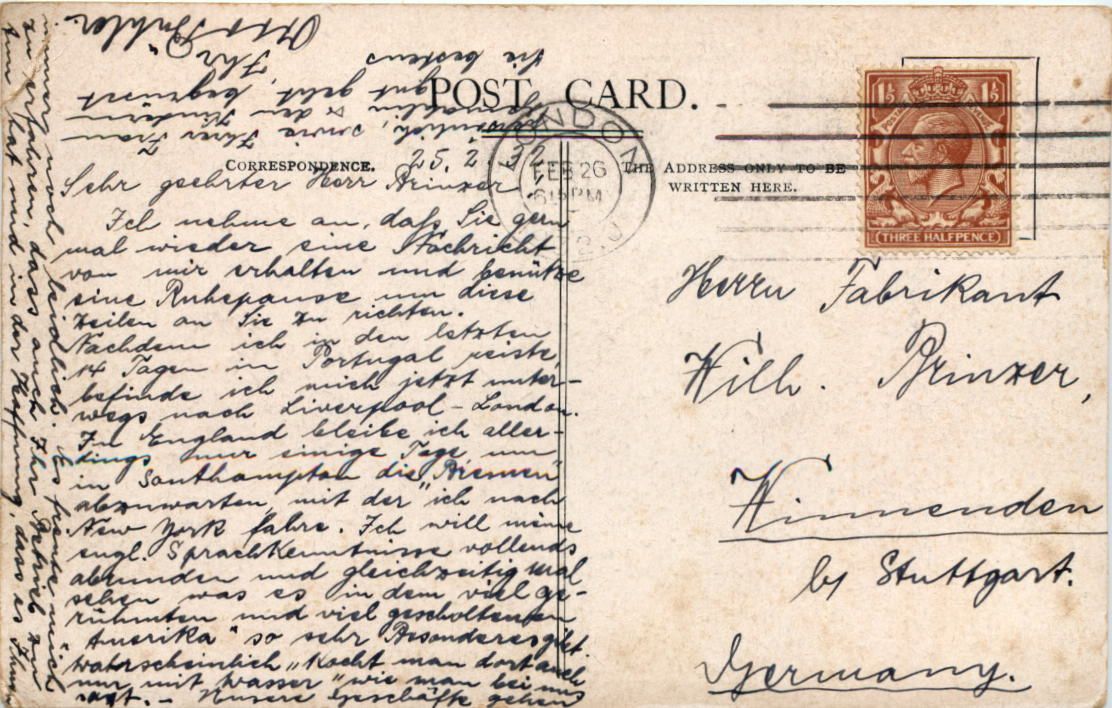 POST CARD.
CORRESPONDENCE.
THE ADDRESS ONLY TO BE
WRITTEN HERE.
LONDON
FEB 26
1½ 1½
POSTAGE
THREE HALFPENCE
25.2.32
Sehr geehrter Herr Brinzer
Ich nehme an, daß Sie gern
mal wieder eine Nachricht
von mir erhalten und benütze
eine Ruhepause um diese
Zeilen an Sie zu richten.
Nachdem ich in den letzten
14 Tagen in Portugal reiste,
befinde ich mich jetzt unter-
wegs nach Liverpool – London.
In England bleibe ich aller-
dings nur einige Tage, um
in Southampton die „Bremen"
abzuwarten, mit der ich nach
New York fahre. Ich will meine
engl. Sprachkenntnisse vollends
abrunden und gleichzeitig mal
sehen was es in dem viel ge-
rühmten und viel gescholtenen
„Amerika" so sehr Besonderes gibt.
Wahrscheinlich „kocht man dort auch
nur mit Wasser" wie man bei uns
sagt. – Unsere Geschäfte gehen
immer noch leidlich. Es freute mich
zu erfahren, dass auch Ihr Betrieb zu
tun hat und in der Hoffnung, dass es Ihnen
persönlich, sowie Ihrer Frau
Gemahlin & den Kindern
gut geht, begrüsst
Sie bestens
Ihr
Herrn Fabrikant
Wilh. Brinzer,
Winnenden
by Stuttgart.
Germany.